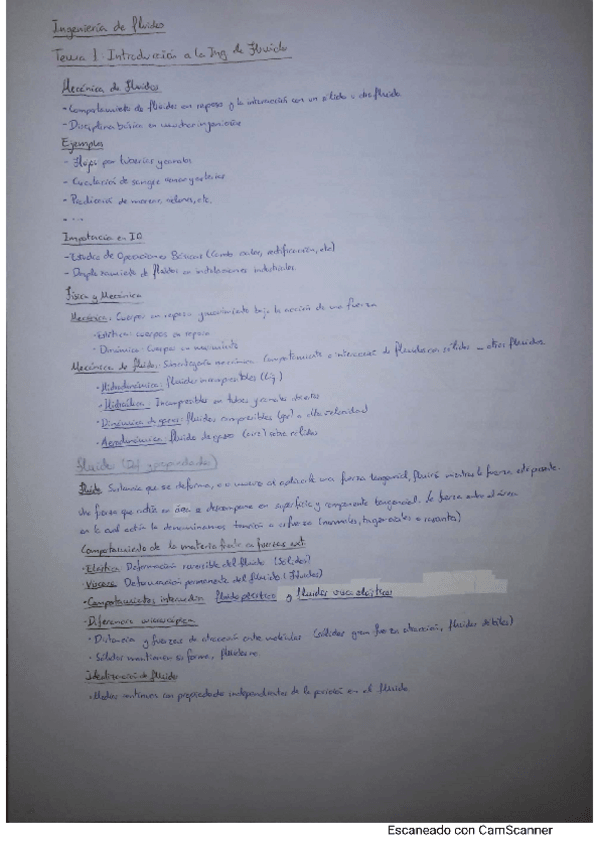 Ingeniería de fluidos
Tema 1. Introducción a la Ing. de Fluidos
Mecánica de Fluidos
- Comportamiento de fluidos en reposo y la interacción con un sólido u otro fluido.
- Disciplina básica en muchas ingenierías
Ejemplos
- Flujo por tuberías y canales
- Circulación de sangre venas y arterias
- Predicción de mareas, ciclones, etc.
- ...
Importancia en IQ
- Estudio de Operaciones Básicas (Cambio calor, rectificación, etc)
- Desplazamiento de fluidos en instalaciones industriales.
Física y Mecánica
Mecánica: Cuerpos en reposo y movimiento bajo la acción de una fuerza
- Estática: cuerpos en reposo
- Dinámica: Cuerpos en movimiento
Mecánica de fluidos: Subcategoría mecánica. Comportamiento e interacción de fluidos con sólidos otros fluidos.
- Hidrodinámica: fluidos incompresibles (Líq.)
- Hidráulica: Incompresibles en tubos y canales
- Dinámica de gases: fluidos compresibles (gas) a alta velocidad
- Aerodinámica: fluido de gases (aire) sobre sólidos
Fluido (Def y propiedades)
Fluido: Sustancia que se deforma, al aplicarle una fuerza tangencial, fluirá mientras la fuerza esté presente.
Una fuerza que actúa en área se descompone en superficie y componente tangencial. La fuerza entre el área
en la cual actúa la denominamos tensión o esfuerzo (normales, tangenciales o rasantes)
Comportamiento de la materia frente a fuerzas ext.
- Elástica: Deformación reversible del fluido (Sólidos)
- Viscosa: Deformación permanente del fluido (Fluidos)
- Comportamientos intermedios: fluido plástico y fluidos viscoelásticos
- Diferencia microscópica
- Distancia y fuerzas de atracción entre moléculas (sólidos gran fuerza atracción, fluidos débiles)
- Sólidos mantienen su forma, fluidos no.
Idealización de fluido
- Medios continuos con propiedades independientes de la posición en el fluido.
Escaneado con CamScanner